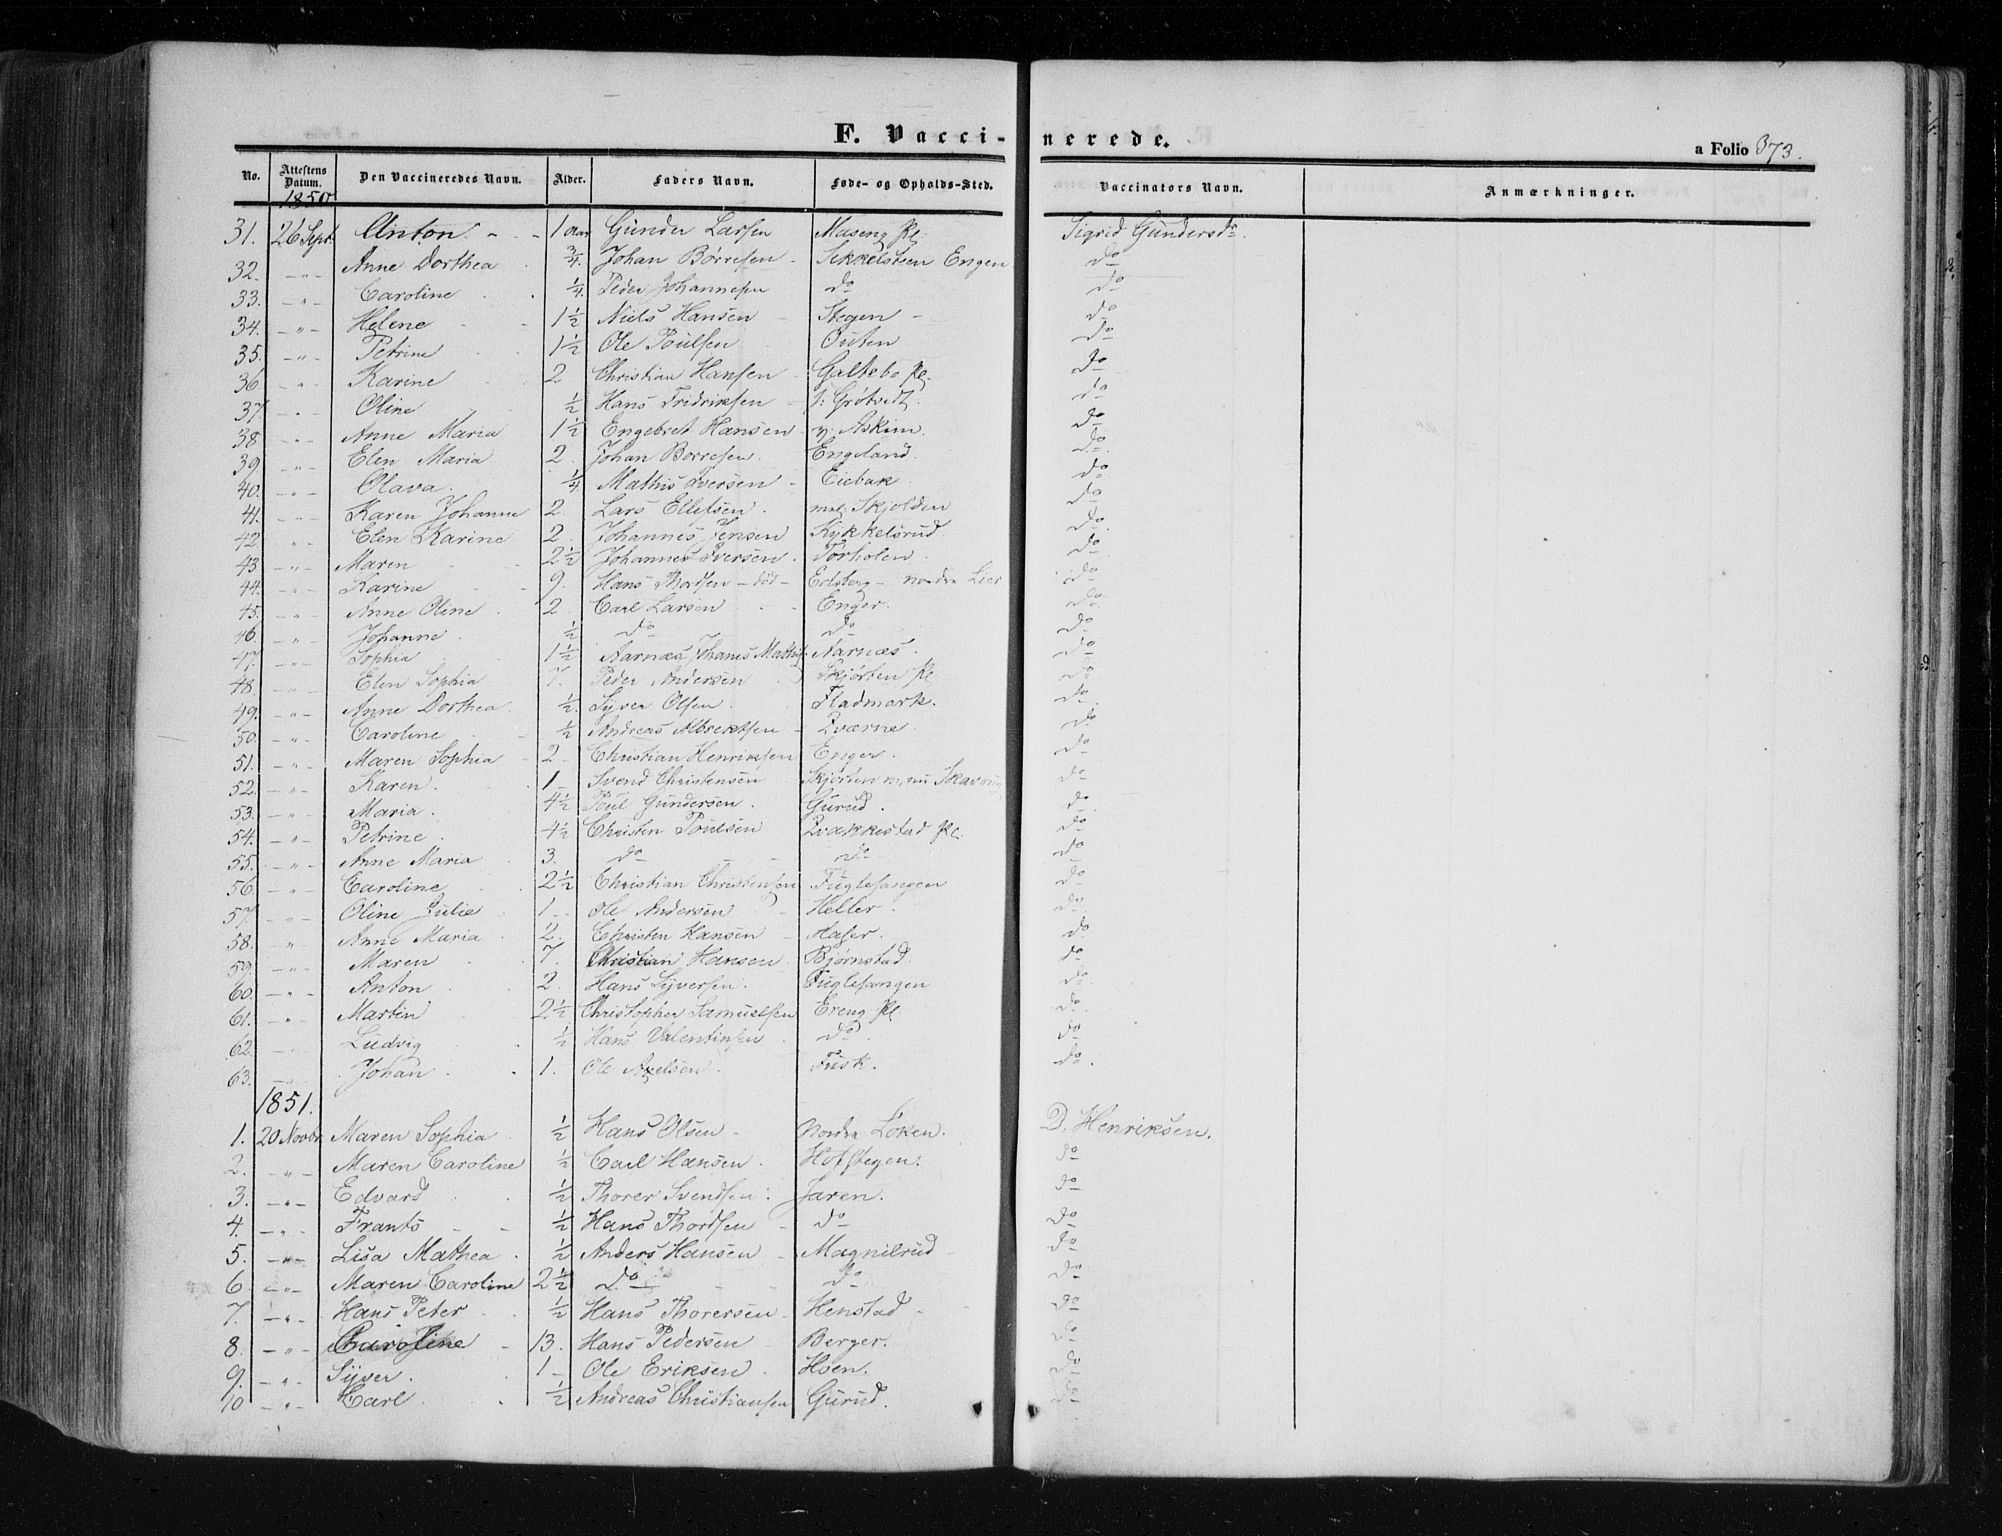 F. Vaccinerede.
a Folio 373.
No. Attestens Datum. Den Vaccineredes Navn. Alder. Faders Navn. Føde- og Opholds-Sted. Vaccinators Navn. Anmærkninger.
1850
31. 26 Sept. Anton. - - 1 Aar Gunder Larsen Maseng Pl. Sigrid Gundersd.
32. -"- Anne Dorthea 3/4 Johan Børresen - Sekkelsten Engen do
33. -"- Caroline 1/4 Peder Johannesen do do
34. -"- Helene 1 1/2 Niels Hansen - Stegen - do
35. -"- Petrine 1 1/2 Ole Poulsen Outen do
36 -"- Karine 2 Christian Hansen Galtebo Pl. do
37 -"- Oline 1/2 Hans Fredriksen - s: Grøtvedt. do
38 -"- Anne Maria 1 1/2 Engebret Hansen v: Askim. do
39. -"- Elen Maria 2. Johan Borresen. Engeland. do.
40. -"- Olava. 1/4 Mathis Iversen - Eiebak. do
41. -"- Karen Johanne 2. Lars Ellefsen Skjolden do
42. -"- Elen Karine 2. Johannes Jensen Kykkelsrud. do.
43 -"- Maren 2 1/2 Johannes Iversen. Torholen. do
44. -"- Karine 9. Hans Thordsen - død - Edsberg - nordra Lier do
45. -"- Anne Oline 2. Carl Larsen Enger. do.
46. -"- Johanne. 1/2 do do do
47. -"- Sophia 1 1/2 Aarnæs Johanes Mathis. Aarnæs. do
48. -"- Elen Sophia 7. Peder Andersen Skjørten Pl do
49. -"- Anne Dorthea. 1/2 Syver Olsen. Fladmark. do.
50. -"- Caroline 1/2 Andreas Albrektsen - Qværne do
51. -"- Maren Sophia - 2 - Christian Henriksen Enger. do
52. -"- Karen. 1 - Svend Christensen Skjørten do
53. -"- Maria. 4 1/2 Poul Gundersen. Gurud. do.
54. -"- Petrine. 4 1/2 Christen Poulsen Qvakkestad Pl. do
55. -"- Anne Maria 3. do do do
56. -"- Caroline 2 1/2 Christian Christensen Fuglesangen do
57. -"- Oline Julie 1. - Ole Andersen Heller. do.
58. -"- Anne Maria 2. Christen Hansen - Hager. do
59. -"- Maren 7. Christian Hansen. Bjørnstad. do
60. -"- Anton 2. Hans Syversen. Fuglesangen do
61. -"- Martin 2 1/2 Christopher Samuelsen Ereng Pl. do.
62. -"- Ludvig 1/2 Hans Valentinsen do. do
63. -"- Johan. 1. Ole Axelsen. Fusk. do.
1851.
1. 20 Novbr. Maren Sophia 1/2 Hans Olsen - Nordra Løken. D. Henriksen.
2. -"- Maren Caroline 1/2 Carl Hansen. Hofstegen. do
3. -"- Edvard 1/2 Thorer Svendsen. Jaren. do
4. -"- Frants - - 1/2 Hans Thordsen - do do
5. -"- Lisa Mathea. 1/2 Anders Hansen - Magnilrud - do
6. -"- Maren Caroline 2 1/2 do. - - do do
7. -"- Hans Peter 1/2 Hans Thorersen - Henstad - do
8. -"- Caroline - 13. Hans Pedersen - Berger. do
9. -"- Syver. 1 - Ole Eriksen. Hoen. do
10 -"- Carl 1/2 Andreas Christiansen Gurud. do